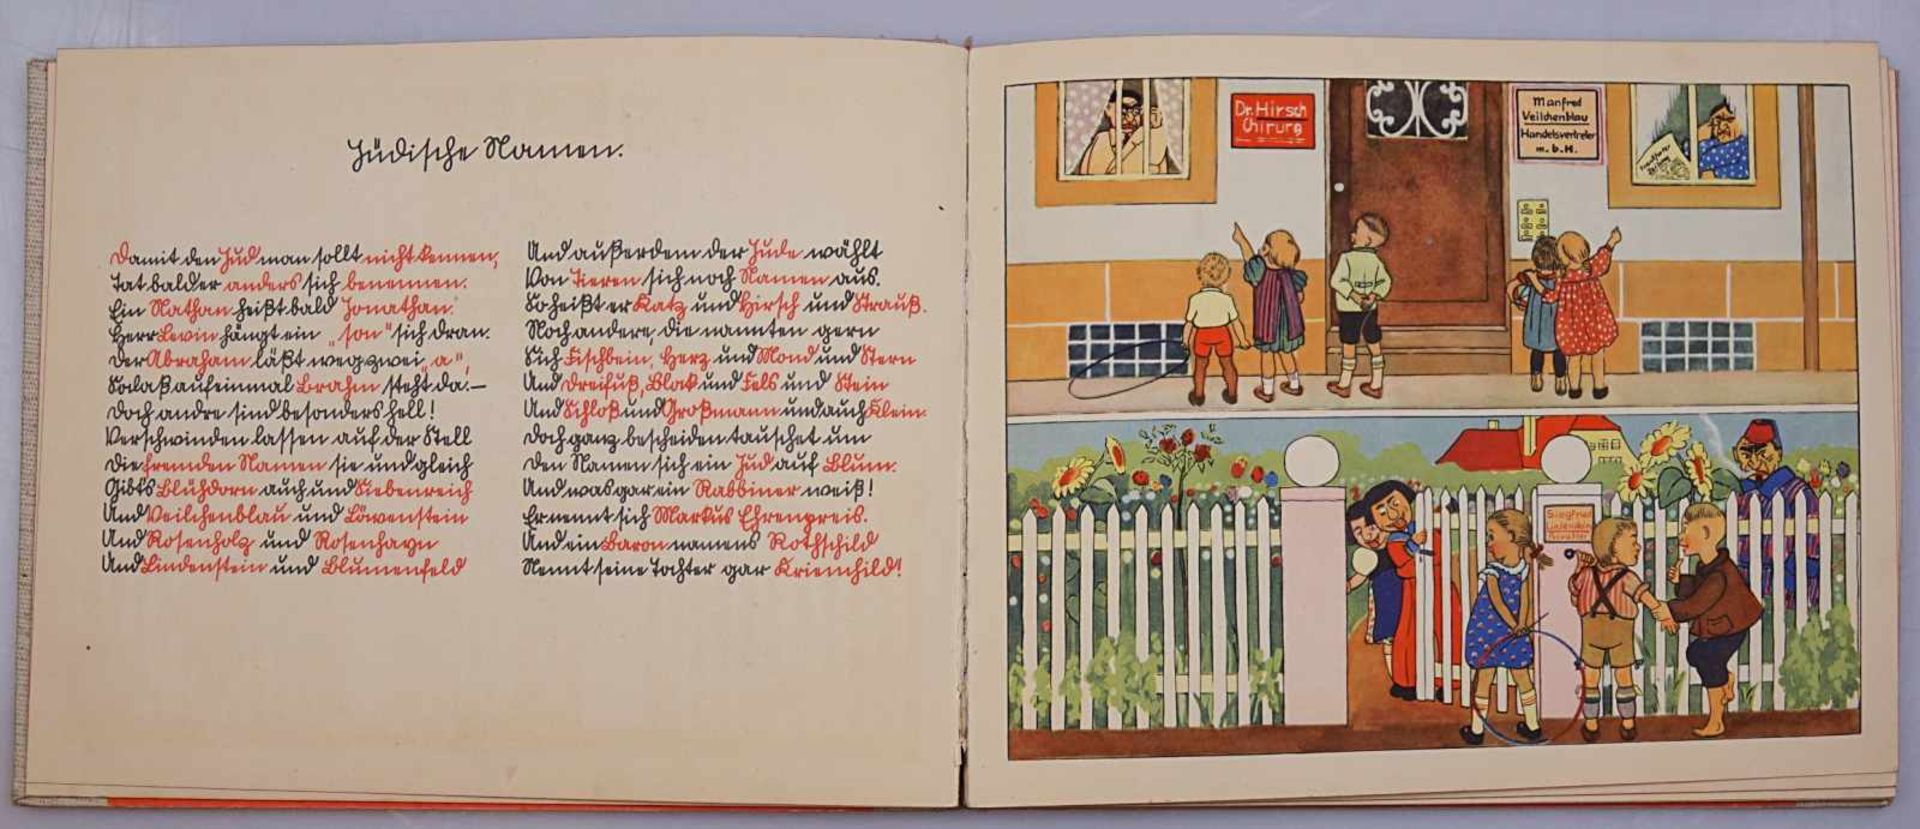 Jüdische Namen.
Damit den Jud man sollt nicht kennen,
Tat bald er anders sich benennen.
Ein Nathan heißt bald Jonathan.
Herr Levin hängt ein „son" sich dran.
Der Abraham läßt weg zwei „a",
Sodaß auf einmal Brahm steht da.—
Doch andre sind besonders hell!
Verschwinden lassen auf der Stell
Die fremden Namen sie und gleich
Gibt's Blühdorn auch und Siebenreich
Und Veilchenblau und Löwenstein
Und Rosenholz und Rosenhayn
Und Lindenstein und Blumenfeld
Und außerdem der Jude wählt
Von Tieren sich noch Namen aus.
So heißt er Katz und Hirsch und Strauß.
Noch andere, die nannten gern
Sich Fischbein, Herz und Mond und Stern
Und Dreifuß, Blak und Fels und Stein
Und Schloß und Großmann und auch Klein.
Doch ganz bescheiden tauschet um
Den Namen sich ein Jud auf Blum.
Und was gar ein Rabbiner weiß!
Er nennt sich Markus Ehrenpreis.
Und ein Baron namens Rothschild
Nennt seine Tochter gar Kriemhild!
Dr. Hirsch
Chirurg
Manfred
Veilchenblau
Handelsvertreter
m.b.H.
Frankfurter
Siegfried